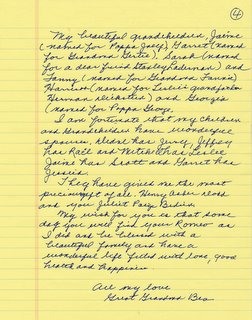 4
My beautiful grandchildren, Jaime
(named for Poppa Jack) Garret (named
for Grandma Gertie), Sarah (named
for a dear friend Stanley Laderman) and
Fanny (named for Grandma Fannie)
Harrison (named for Leslie's grandfather
Herman) and Georgia
(named for Poppa George).
I am fortunate that my children
and Grandchildren have wonderful
spouses, has Jeffrey
has and has Leslie
Jaime has Scott and Garret has
Jessica.
They have given me the most
precious gift of all. Henry Asher
and you Juliet Paige
My wish for you is that some
day you will find your Romeo as
I did and be blessed with a
beautiful family and have a
wonderful life filled with love, good
health and happiness
All my love
Great Grandma Bea